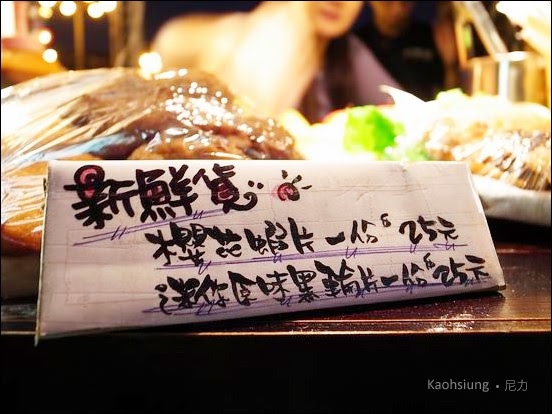 新鮮貨
櫻花蝦片一份$25元
迷你原味黑輪片一份$25元
Kaohsiung • 尼力